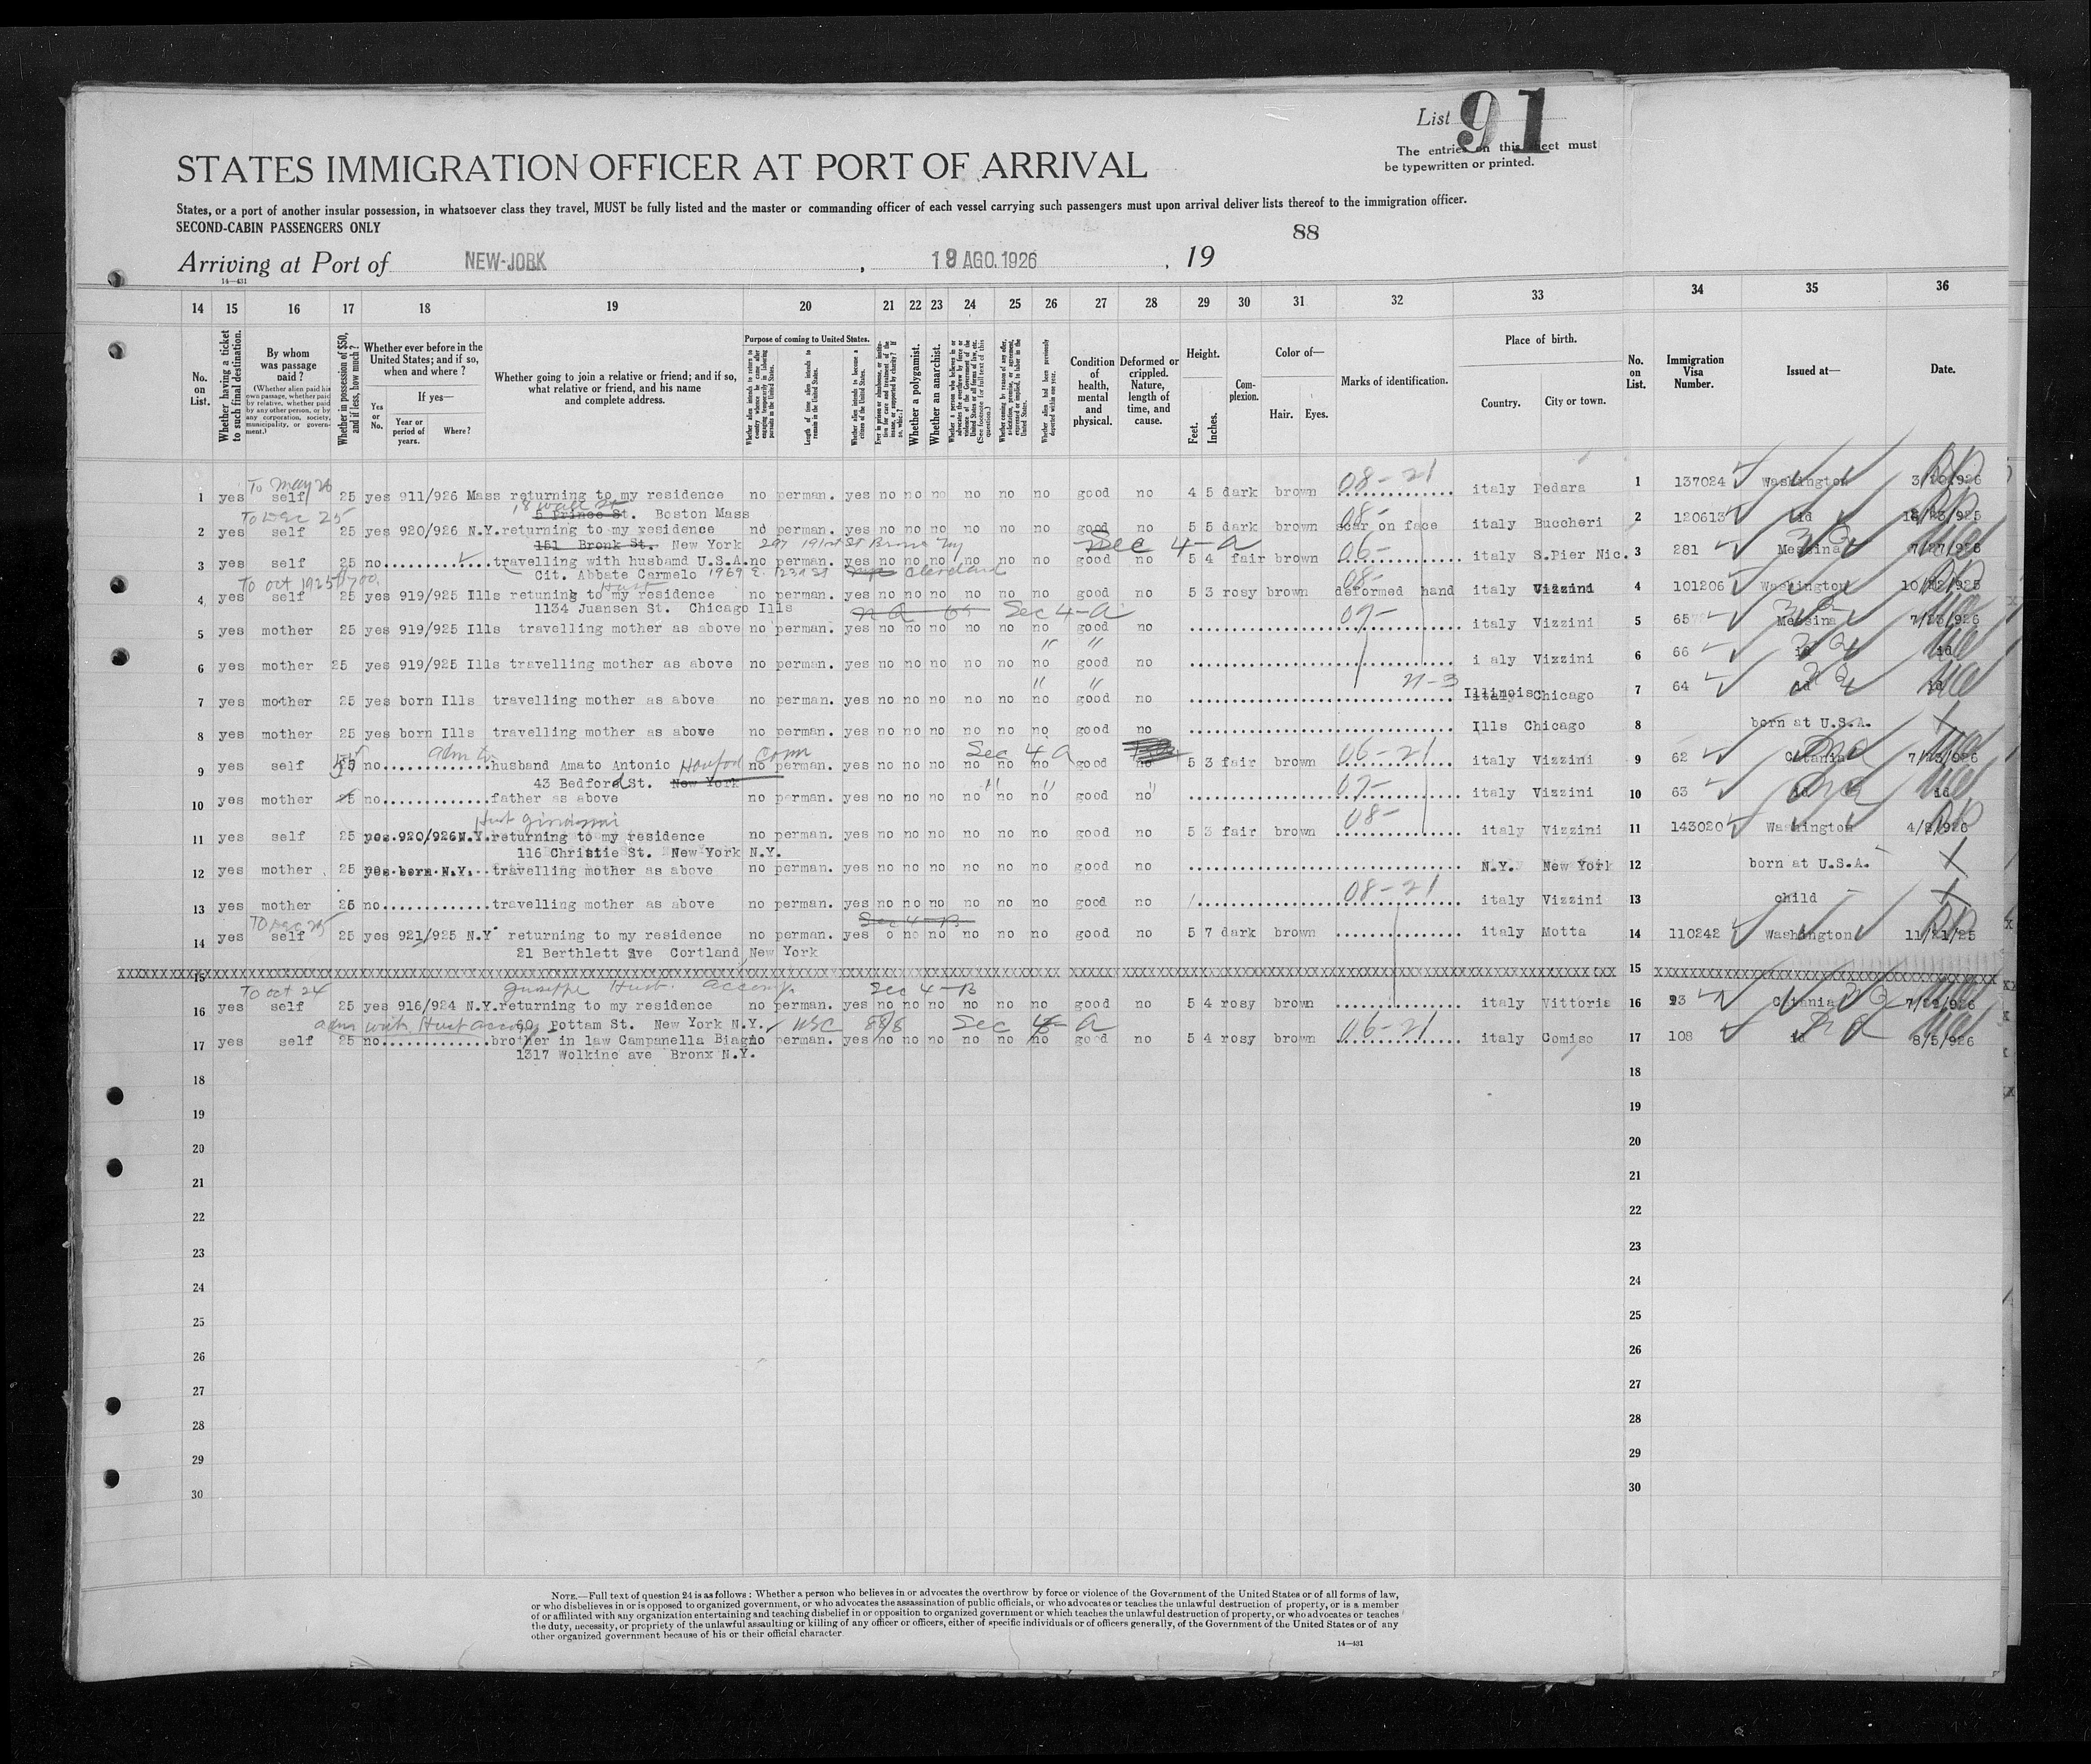 List 91
The entries on this sheet must
be typewritten or printed.
STATES IMMIGRATION OFFICER AT PORT OF ARRIVAL
States, or a port of another insular possession, in whatsoever class they travel, MUST be fully listed and the master or commanding officer of each vessel carrying such passengers must upon arrival deliver lists thereof to the immigration officer.
SECOND-CABIN PASSENGERS ONLY
88
Arriving at Port of NEW-JORK , 19 AGO. 1926 , 19
14—431
14 15 16 17 18 19 20 21 22 23 24 25 26 27 28 29 30 31 32 33 34 35 36
No. on List.
Whether having a ticket to such final destination.
By whom was passage paid?
(Whether alien paid his own passage, whether paid by relative, whether paid by any other person, or by any corporation, society, municipality, or government.)
Whether in possession of $50, and if less, how much?
Whether ever before in the United States; and if so, when and where?
Yes or No.
If yes—
Year or period of years.
Where?
Whether going to join a relative or friend; and if so, what relative or friend, and his name and complete address.
Purpose of coming to United States.
Whether alien intends to return to country whence he came after engaging temporarily in laboring pursuits in the United States.
Length of time alien intends to remain in the United States.
Whether alien intends to become a citizen of the United States.
Ever in prison or almshouse, or institution for care and treatment of the insane, or supported by charity? If so, which?
Whether a polygamist.
Whether an anarchist.
Whether a person who believes in or advocates the overthrow by force or violence of the Government of the United States or all forms of law, etc. (See footnote for full text of this question.)
Whether coming by reason of any offer, solicitation, promise, or agreement, expressed or implied, to labor in the United States.
Whether alien had been previously deported within one year.
Condition of health, mental and physical.
Deformed or crippled. Nature, length of time, and cause.
Height.
Feet. Inches.
Complexion.
Color of—
Hair. Eyes.
Marks of identification.
Place of birth.
Country. City or town.
No. on List.
Immigration Visa Number.
Issued at—
Date.
To May 26 08-21
1 yes self 25 yes 911/926 Mass returning to my residence no perman. yes no no no no no no good no 4 5 dark brown italy Pedara 1 137024 Washington 3/10/926
18 Wall St
5 Prince St. Boston Mass
To Dec 25 08-
2 yes self 25 yes 920/926 N.Y. returning to my residence no perman. yes no no no no no no good no 5 5 dark brown scar on face italy Buccheri 2 120613 id 12/23/925
151 Bronk St. New York 297 191st St Bronx NY Sec 4-a 06-
3 yes self 25 no travelling with husband U.S.A. no perman. yes no no no no no no good no 5 4 fair brown italy S.Pier Nic. 3 281 Messina 7/27/926
Cit. Abbate Carmelo 1969 E. 123 St Cleveland
To Oct 1925 Husb 08-
4 yes self 25 yes 919/925 Ills retuning to my residence no perman. yes no no no no no no good no 5 3 rosy brown deformed hand italy Vizzini 4 101206 Washington 10/22/925
1134 Juansen St. Chicago Ills Sec 4-a 07-
5 yes mother 25 yes 919/925 Ills travelling mother as above no perman. yes no no no no no no good no italy Vizzini 5 65 Messina 7/23/926
" "
6 yes mother 25 yes 919/925 Ills travelling mother as above no perman. yes no no no no no no good no i aly Vizzini 6 66 id id
" " N-3
7 yes mother 25 yes born Ills travelling mother as above no perman. yes no no no no no no good no Illinois Chicago 7 64 id id
8 yes mother 25 yes born Ills travelling mother as above no perman. yes no no no no no no good no Ills Chicago 8 born at U.S.A. X
Conn Sec 4 a 06-21
9 yes self no husband Amato Antonio no perman. yes no no no no no no good no 5 3 fair brown italy Vizzini 9 62 Catania 7/23/926
43 Bedford St. New York " " " 07-
10 yes mother 25 no father as above no perman. yes no no no no no no good no italy Vizzini 10 63 id id
08-
11 yes self 25 yes 920/926 N.Y. returning to my residence no perman. yes no no no no no no good no 5 3 fair brown italy Vizzini 11 143020 Washington 4/8/926
116 Christie St. New York N.Y.
12 yes mother 25 yes born N.Y. travelling mother as above no perman. yes no no no no no no good no N.Y. New York 12 born at U.S.A. X
08-21
13 yes mother 25 no travelling mother as above no perman. yes no no no no no no good no italy Vizzini 13 child X
To Dec 25 Sec 4-B
14 yes self 25 yes 921/925 N.Y returning to my residence no perman. yes o no no no no no good no 5 7 dark brown italy Motta 14 110242 Washington 11/21/25
21 Berthlett Ave Cortland New York
15 15
To Oct 24 Giuseppe Husb. accomp. Sec 4-B
16 yes self 25 yes 916/924 N.Y. returning to my residence no perman. yes no no no no no no good no 5 4 rosy brown italy Vittoria 16 93 Catania 7/22/926
60 Pottam St. New York N.Y. USC Sec 4-a 06-21
17 yes self 25 no brother in law Campanella Biagio no perman. yes no no no no no no good no 5 4 rosy brown italy Comiso 17 108 id 8/5/926
1317 Wolkinc ave Bronx N.Y.
18 18
19 19
20 20
21 21
22 22
23 23
24 24
25 25
26 26
27 27
28 28
29 29
30 30
NOTE.—Full text of question 24 is as follows: Whether a person who believes in or advocates the overthrow by force or violence of the Government of the United States or of all forms of law,
or who disbelieves in or is opposed to organized government, or who advocates the assassination of public officials, or who advocates or teaches the unlawful destruction of property, or is a member
of or affiliated with any organization entertaining and teaching disbelief in or opposition to organized government or which teaches the unlawful destruction of property, or who advocates or teaches
the duty, necessity, or propriety of the unlawful assaulting or killing of any officer or officers, either of specific individuals or of officers generally, of the Government of the United States or of any
other organized government because of his or their official character
14—431